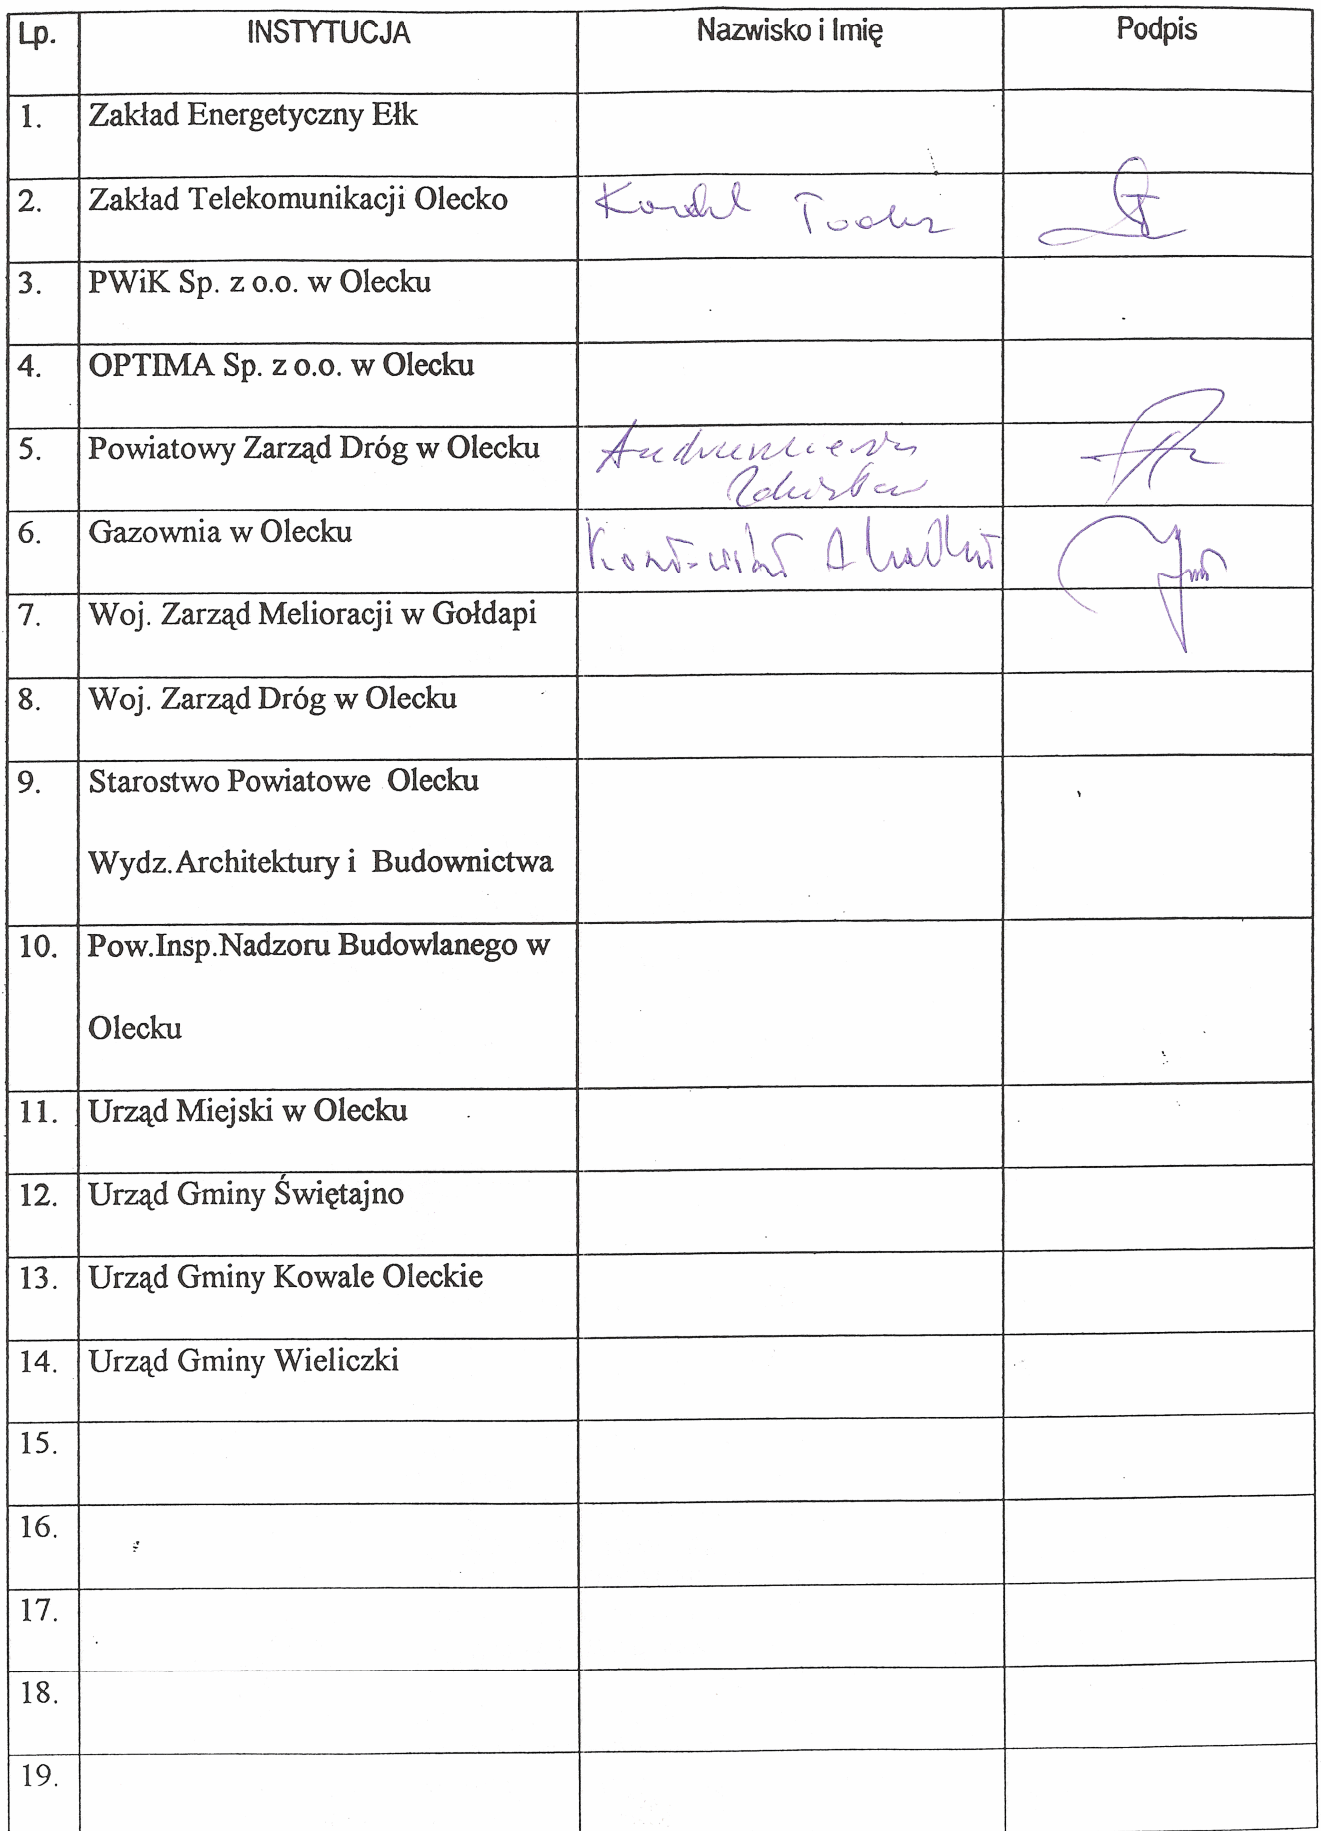 Lp. INSTYTUCJA Nazwisko i Imię Podpis
1. Zakład Energetyczny Ełk
2. Zakład Telekomunikacji Olecko
3. PWiK Sp. z o.o. w Olecku
4. OPTIMA Sp. z o.o. w Olecku
5. Powiatowy Zarząd Dróg w Olecku
6. Gazownia w Olecku
7. Woj. Zarząd Melioracji w Gołdapi
8. Woj. Zarząd Dróg w Olecku
9. Starostwo Powiatowe Olecku
Wydz.Architektury i Budownictwa
10. Pow.Insp.Nadzoru Budowlanego w
Olecku
11. Urząd Miejski w Olecku
12. Urząd Gminy Świętajno
13. Urząd Gminy Kowale Oleckie
14. Urząd Gminy Wieliczki
15.
16.
17.
18.
19.